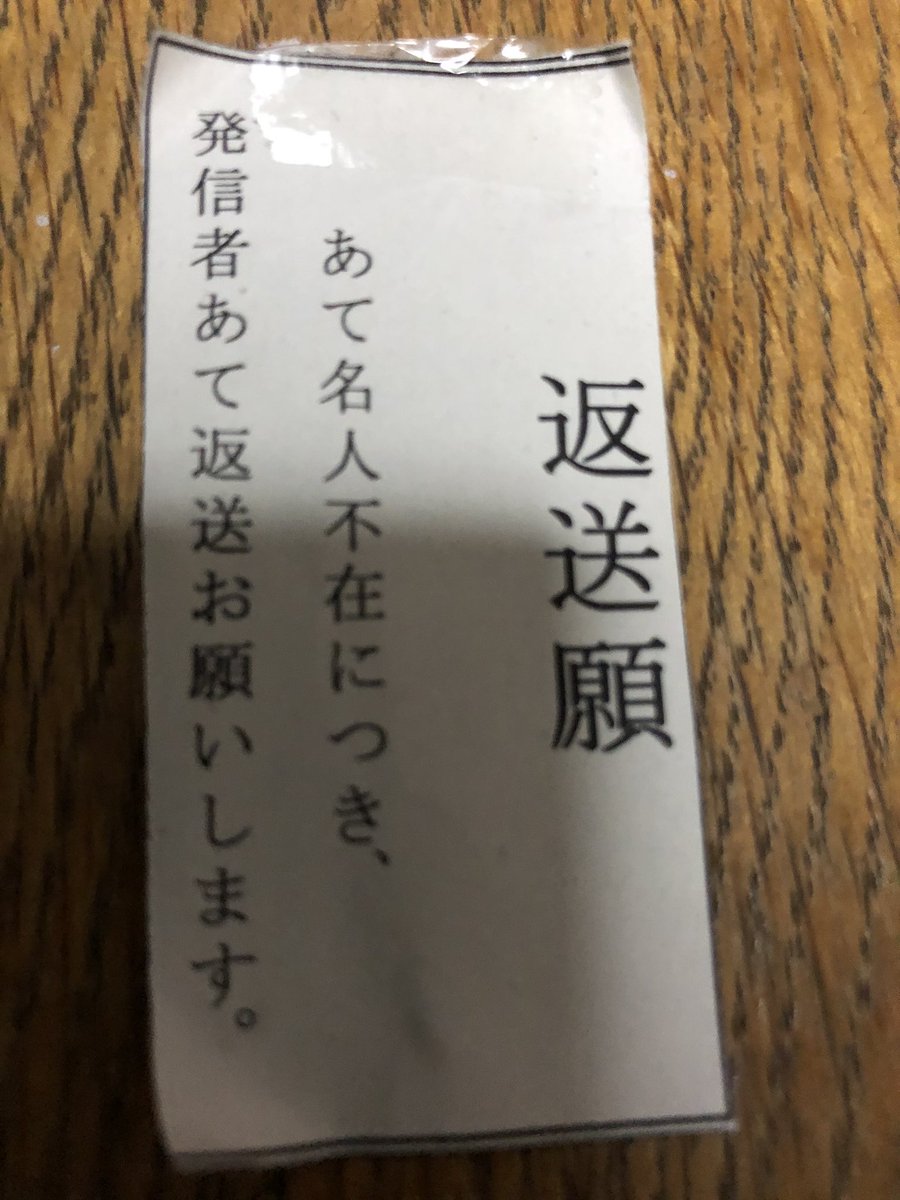 返送願
あて名人不在につき、
発信者あて返送お願いします。